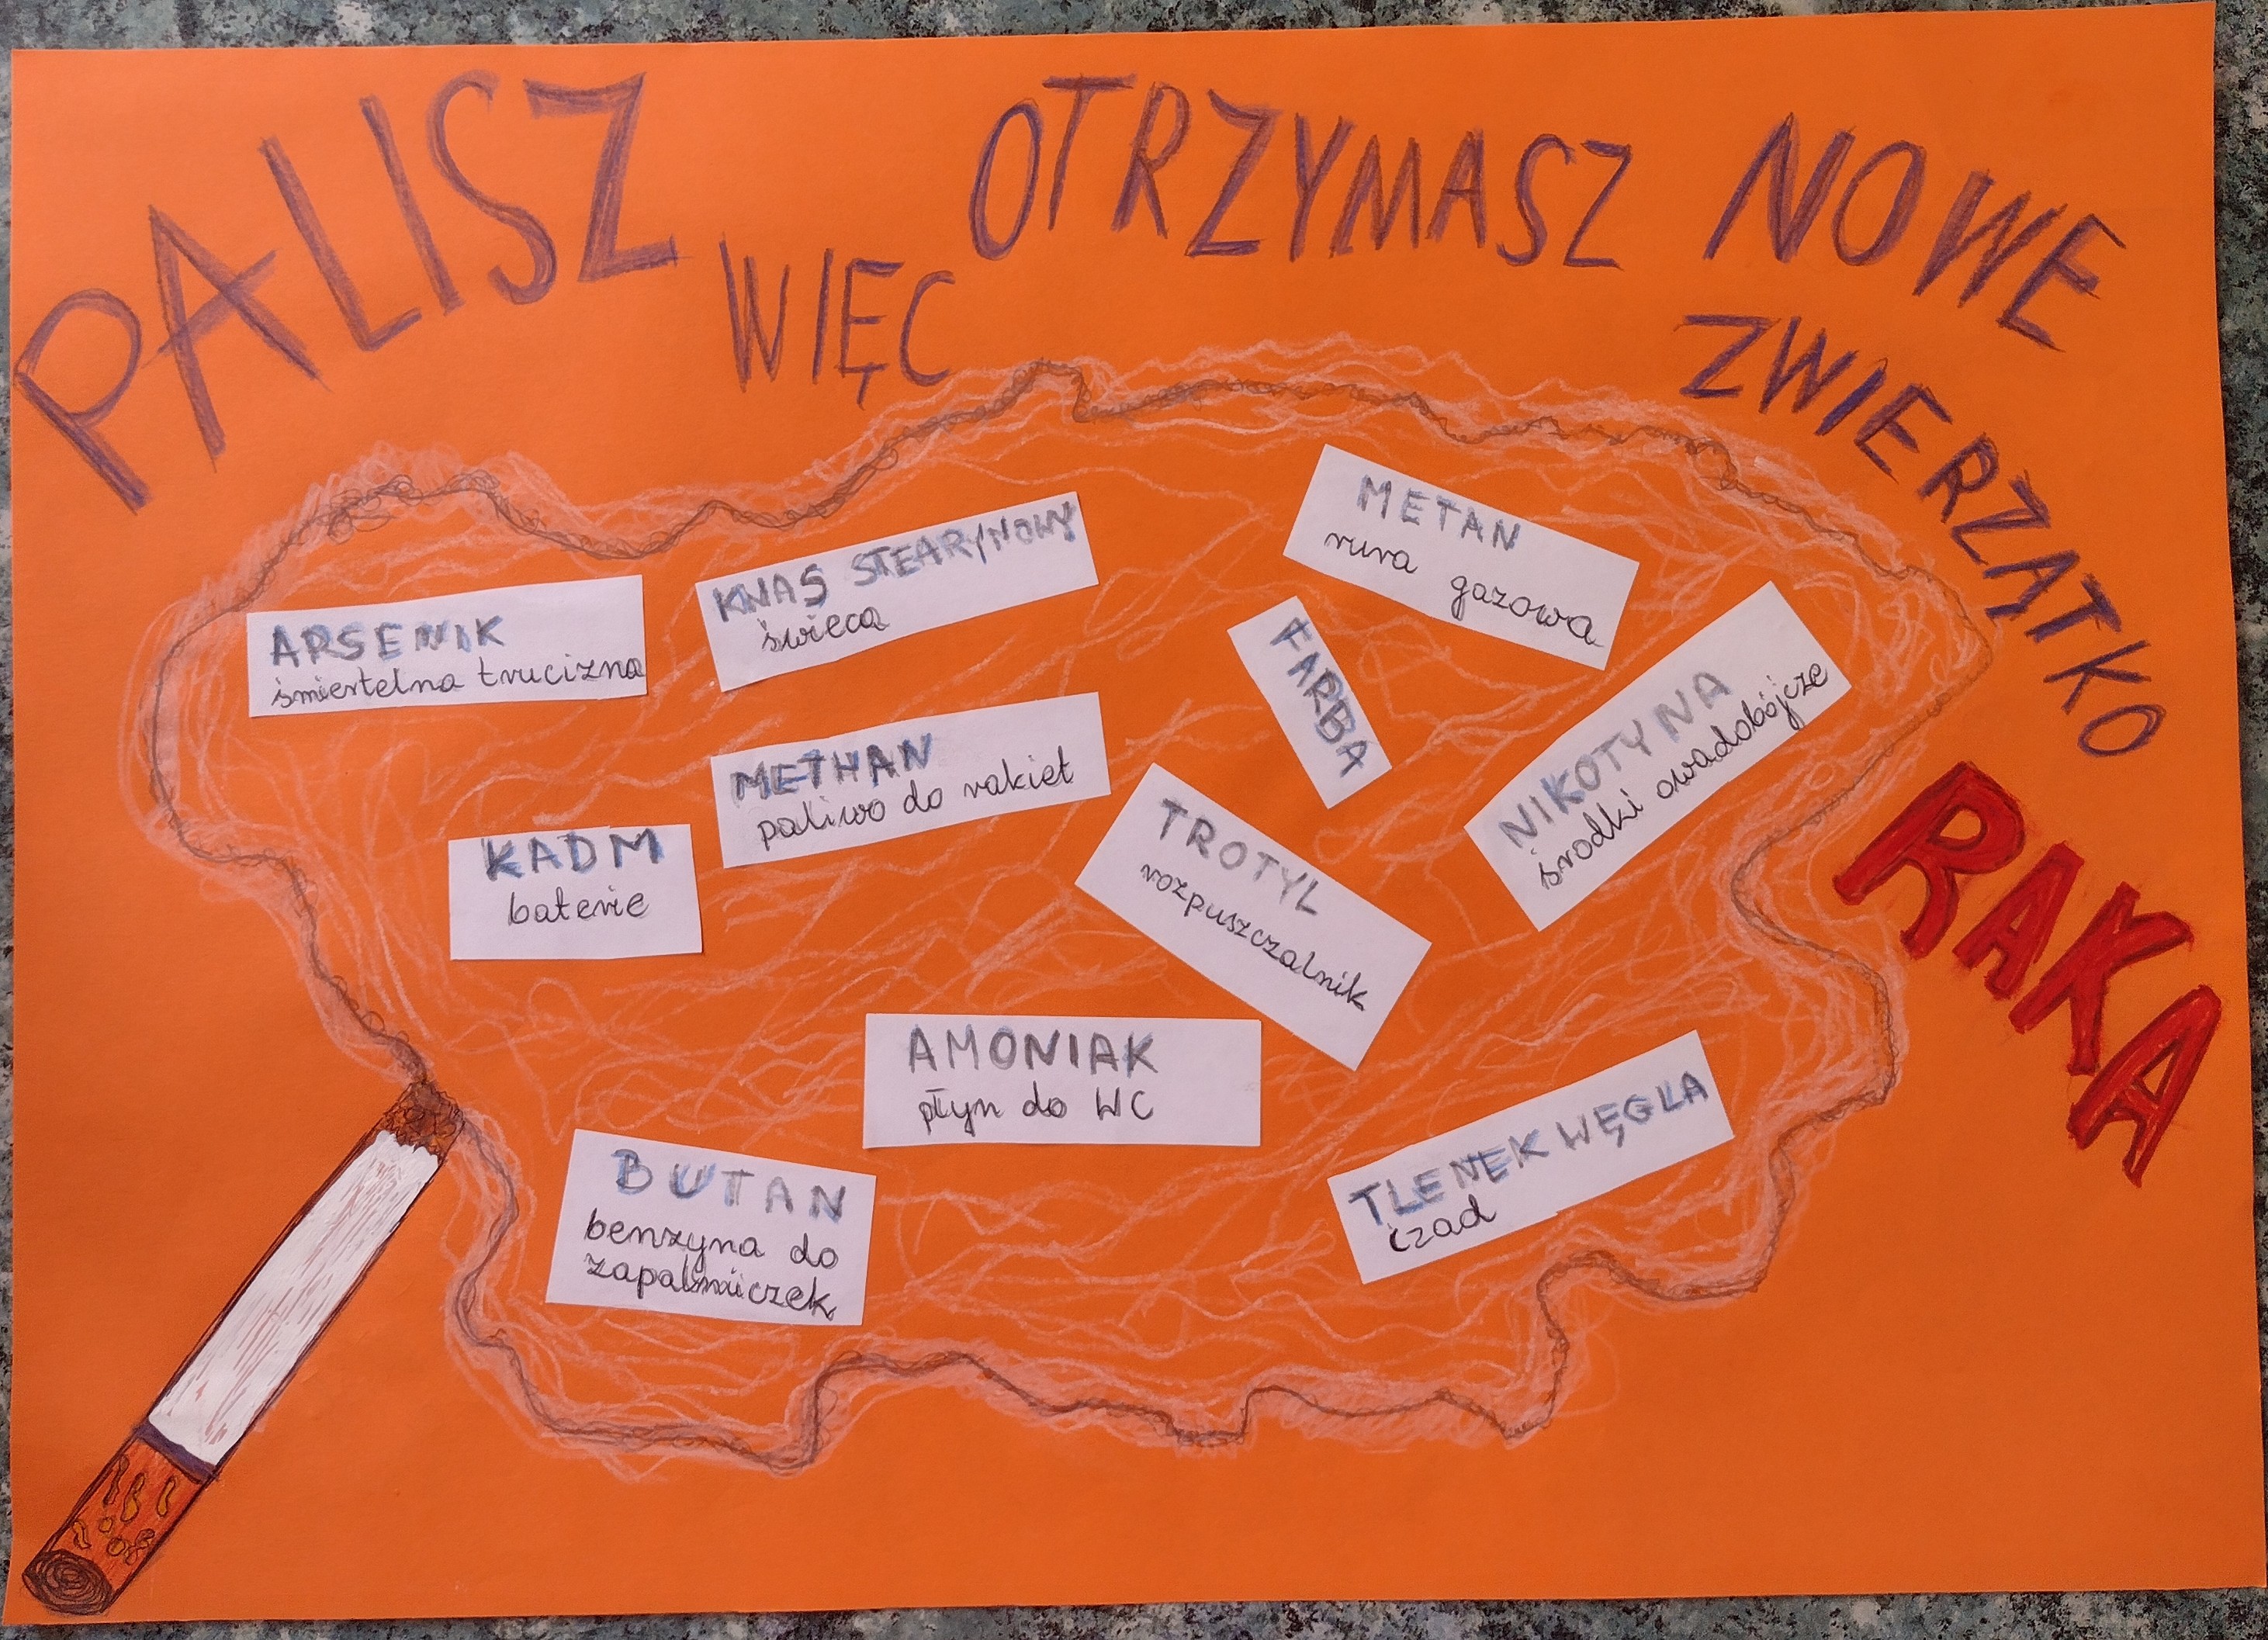 PALISZ
WIĘC
OTRZYMASZ NOWE
ZWIERZĄTKO
RAKA
ARSENIK
śmiertelna trucizna
KWAS STEARYNOWY
świeca
METAN
rura gazowa
FARBA
NIKOTYNA
środki owadobójcze
METHAN
paliwo do rakiet
KADM
baterie
TROTYL
rozpuszczalnik
AMONIAK
płyn do WC
BUTAN
benzyna do
zapalniczek
TLENEK WĘGLA
czad